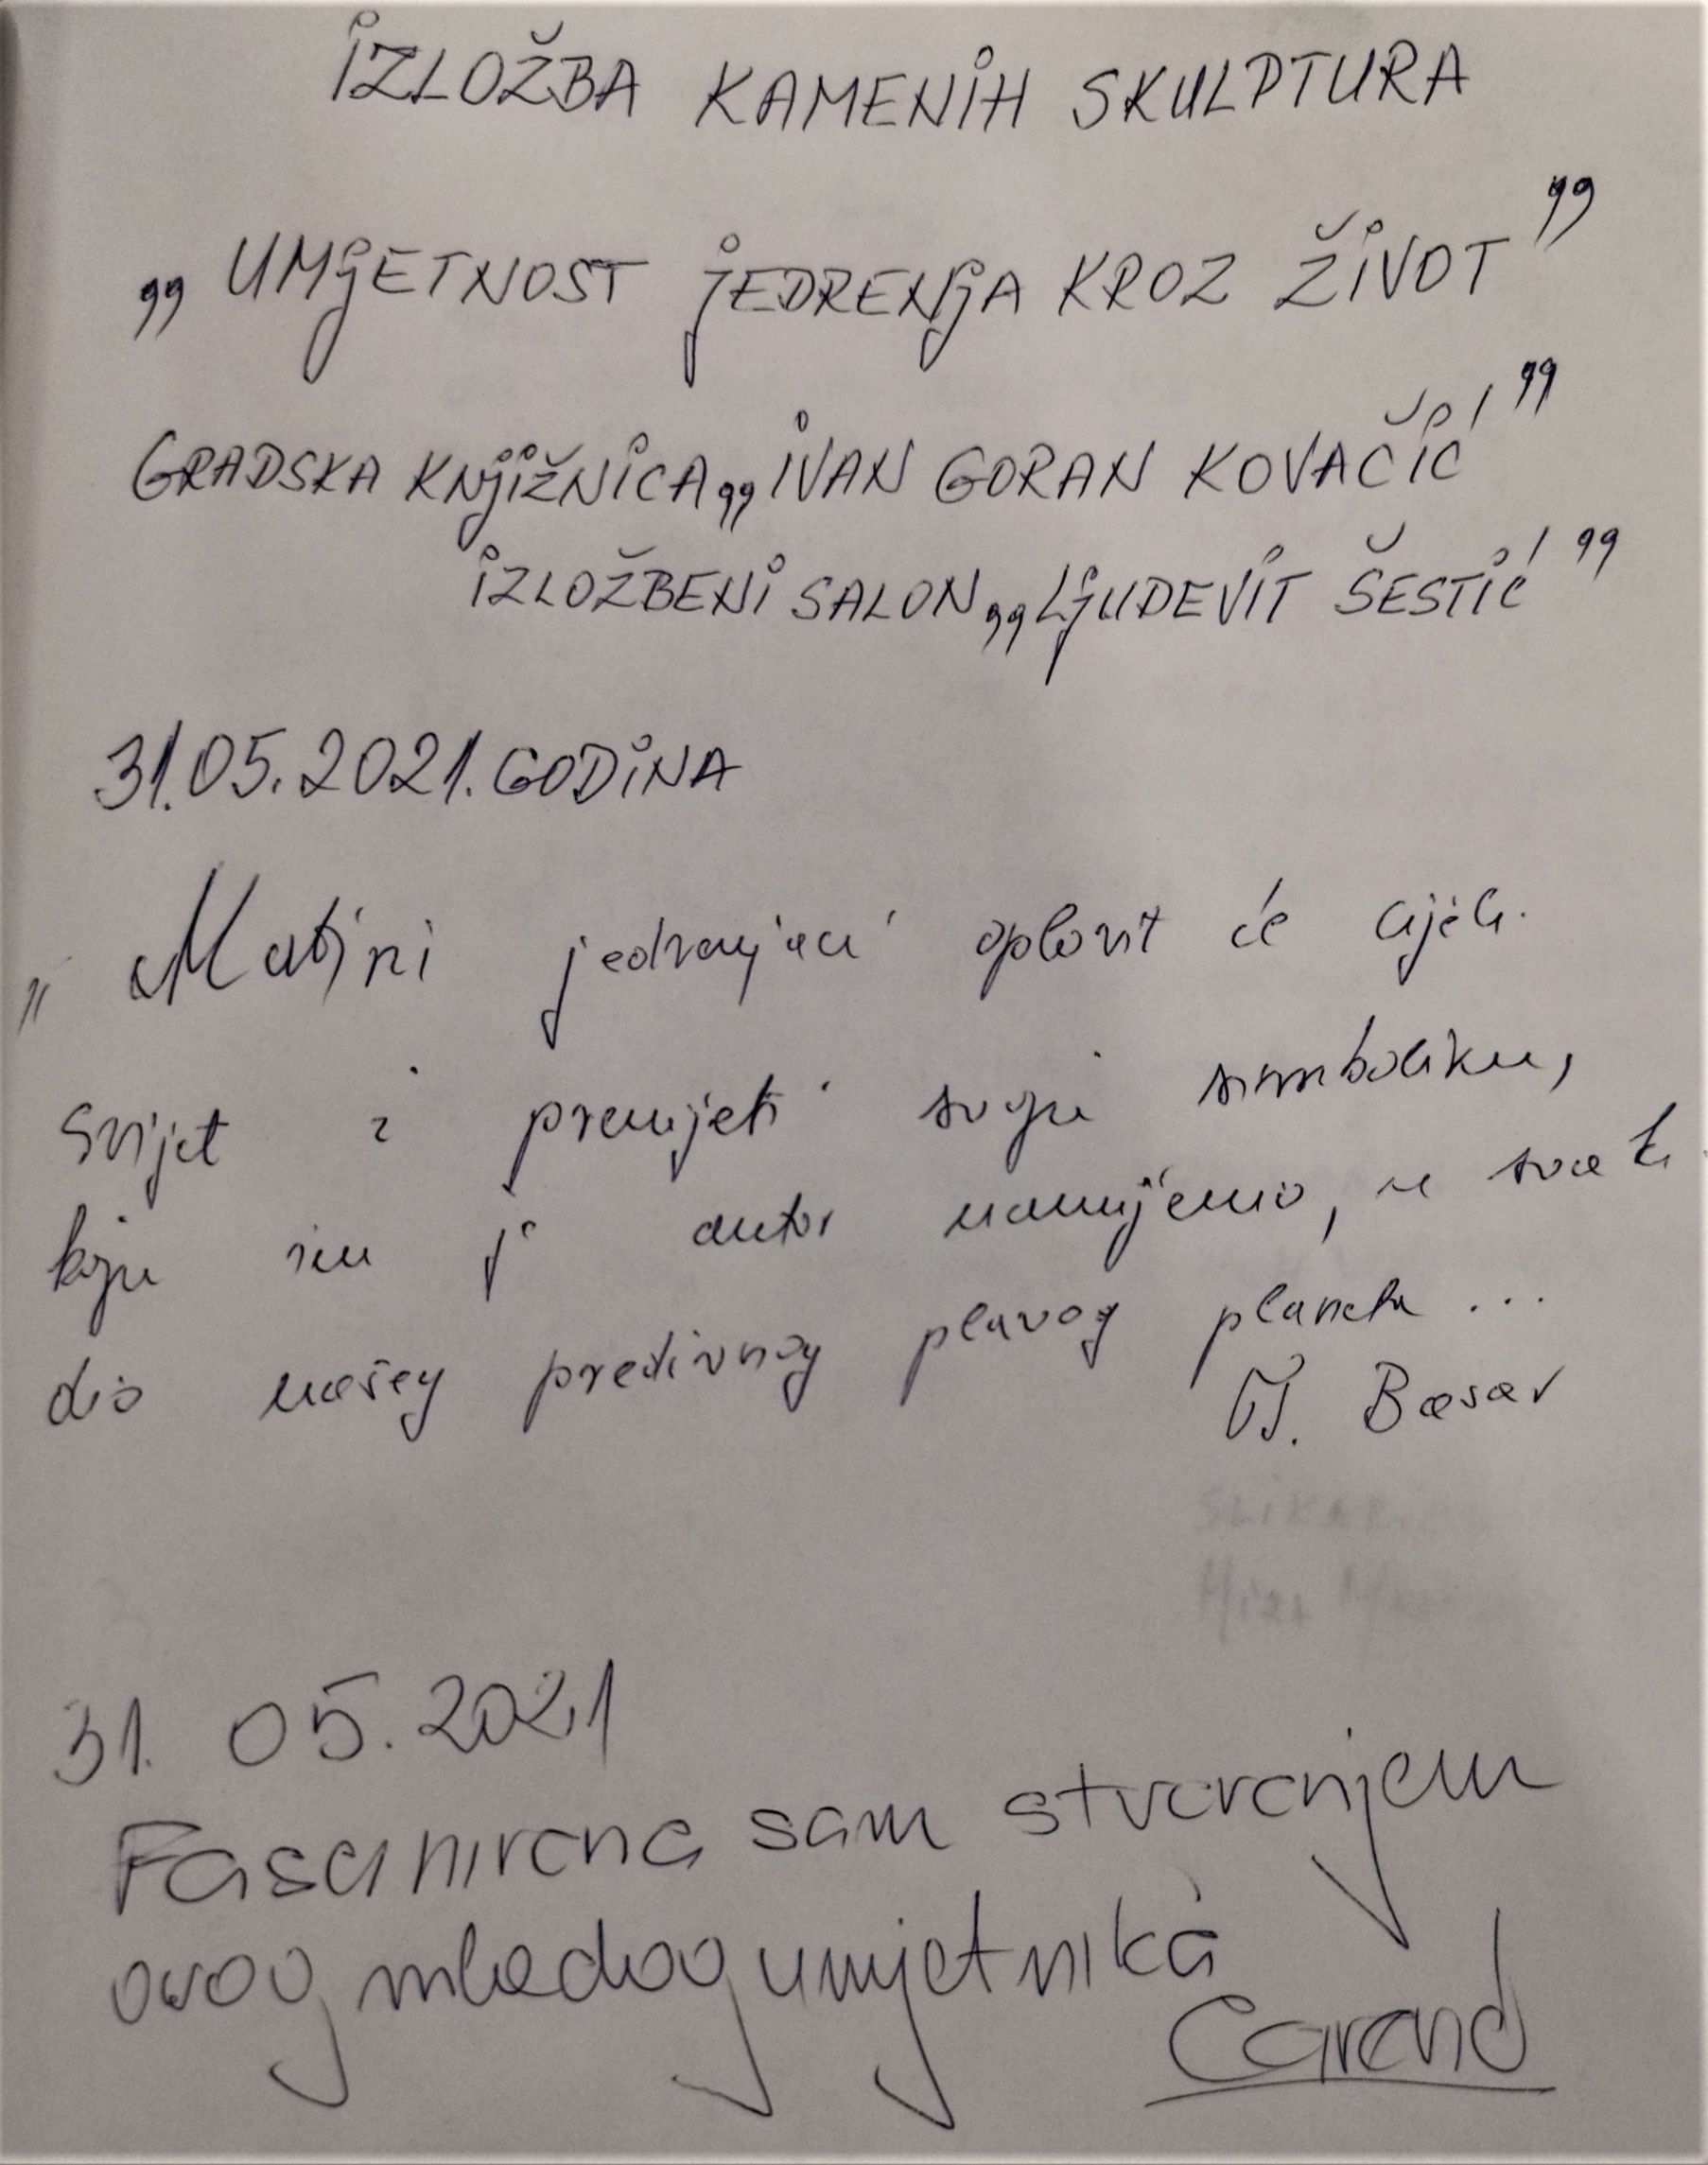 IZLOŽBA KAMENIH SKULPTURA
„UMJETNOST JEDRENJA KROZ ŽIVOT”
GRADSKA KNJIŽNICA „IVAN GORAN KOVAČIĆ”
IZLOŽBENI SALON „LJUDEVIT ŠESTIĆ”
31.05.2021. GODINA
„ Matini jedrenjaci oplovit će cijeli
svijet i prenijeti svoju simboliku,
koju im je autor namijenio, u svaki
dio našeg predivnog plavog planeta ...
Basar
SLIKAR
31. 05. 2021
Fascinirana sam stvaranjem
ovog mladog umjetnika